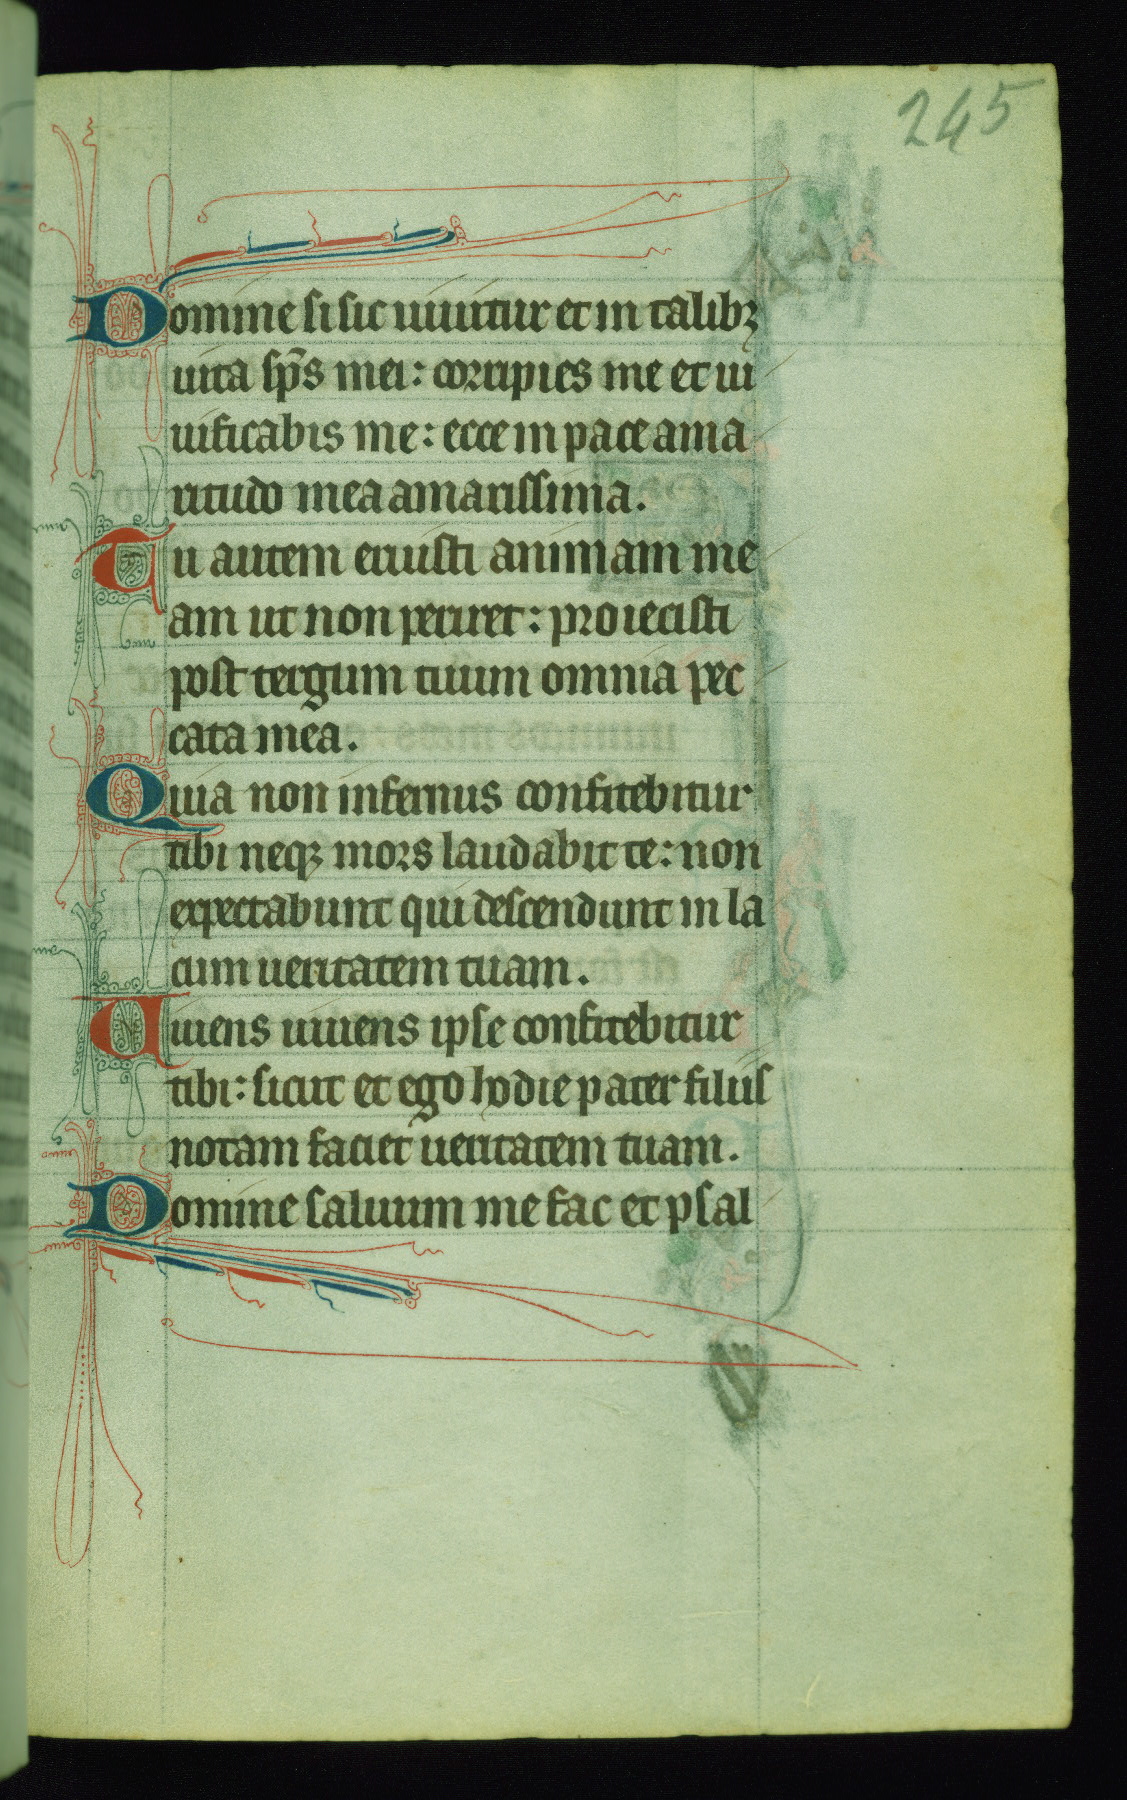 245
Domine si sic uiuitur et in talibꝫ
uita sp̄s mei: corripies me et ui
uificabis me: ecce in pace ama
ritudo mea amarissima.
Tu autem eruisti animam me
am ut non periret: proiecisti
post tergum tuum omnia pec
cata mea.
Quia non infernus confitebitur
tibi neqꝫ mors laudabit te: non
expectabunt qui descendunt in la
cum ueritatem tuam.
Uiuens uiuens ipse confitebitur
tibi: sicut et ego hodie pater filiis
notam faciet ueritatem tuam.
Domine saluum me fac et psal